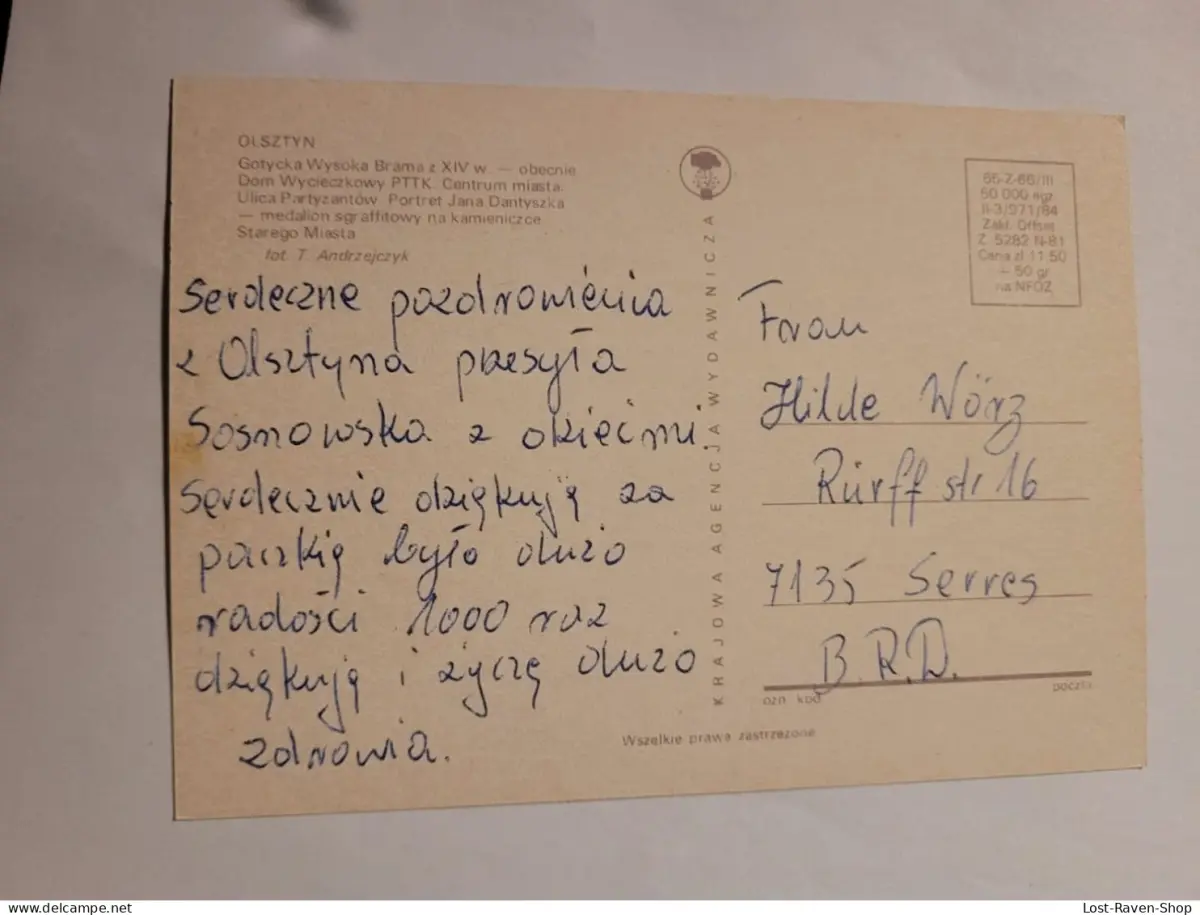 OLSZTYN
Gotycka Wysoka Brama z XIV w. — obecnie
Dom Wycieczkowy PTTK. Centrum miasta.
Ulica Partyzantów. Portret Jana Dantyszka
— medalion sgraffitowy na kamieniczce
Starego Miasta
fot. T. Andrzejczyk
Serdeczne pozdrowienia
z Olsztyna przesyła
Sosnowska z
Serdecznie dziękuję za
paczkię było dużo
radości 1000 raz
dziękuję i życzę dużo
zdrowia.
KRAJOWA AGENCJA WYDAWNICZA
65-Z-66/III
50 000 egz
II-3/971/84
Zakł. Offset
Z. 5282 N-81
Cena zł 11.50
— 50 gr
na NFOZ
Frau
Hilde Wörz
Rürff str 16
7135 Serres
B.R.D.
ozn. kod
poczta
Wszelkie prawa zastrzeżone
Lost-Raven-Shop
www.delcampe.net